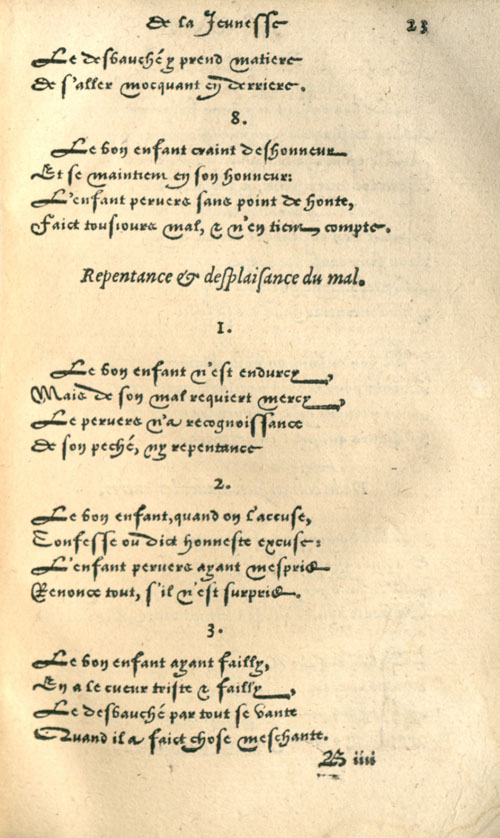 de la Jeunesse 23
Le desbauché y prend matiere
De s'aller mocquant en derriere.
8.
Le bon enfant craint deshonneur
Et se maintient en son honneur:
L'enfant pervers sans point de honte,
Faict tousiours mal, & n'en tient compte.
Repentance & desplaisance du mal.
1.
Le bon enfant n'est endurcy,
Mais de son mal requiert mercy,
Le pervers n'a recognoissance
De son peché, ny repentance
2.
Le bon enfant, quand on l'accuse,
Confesse ou dict honneste excuse:
L'enfant pervers ayant mespris
Renonce tout, s'il n'est surpris.
3.
Le bon enfant ayant failly,
En a le cueur triste & failly,
Le desbauché par tout se vante
Quand il a faict chose meschante.
B iiii